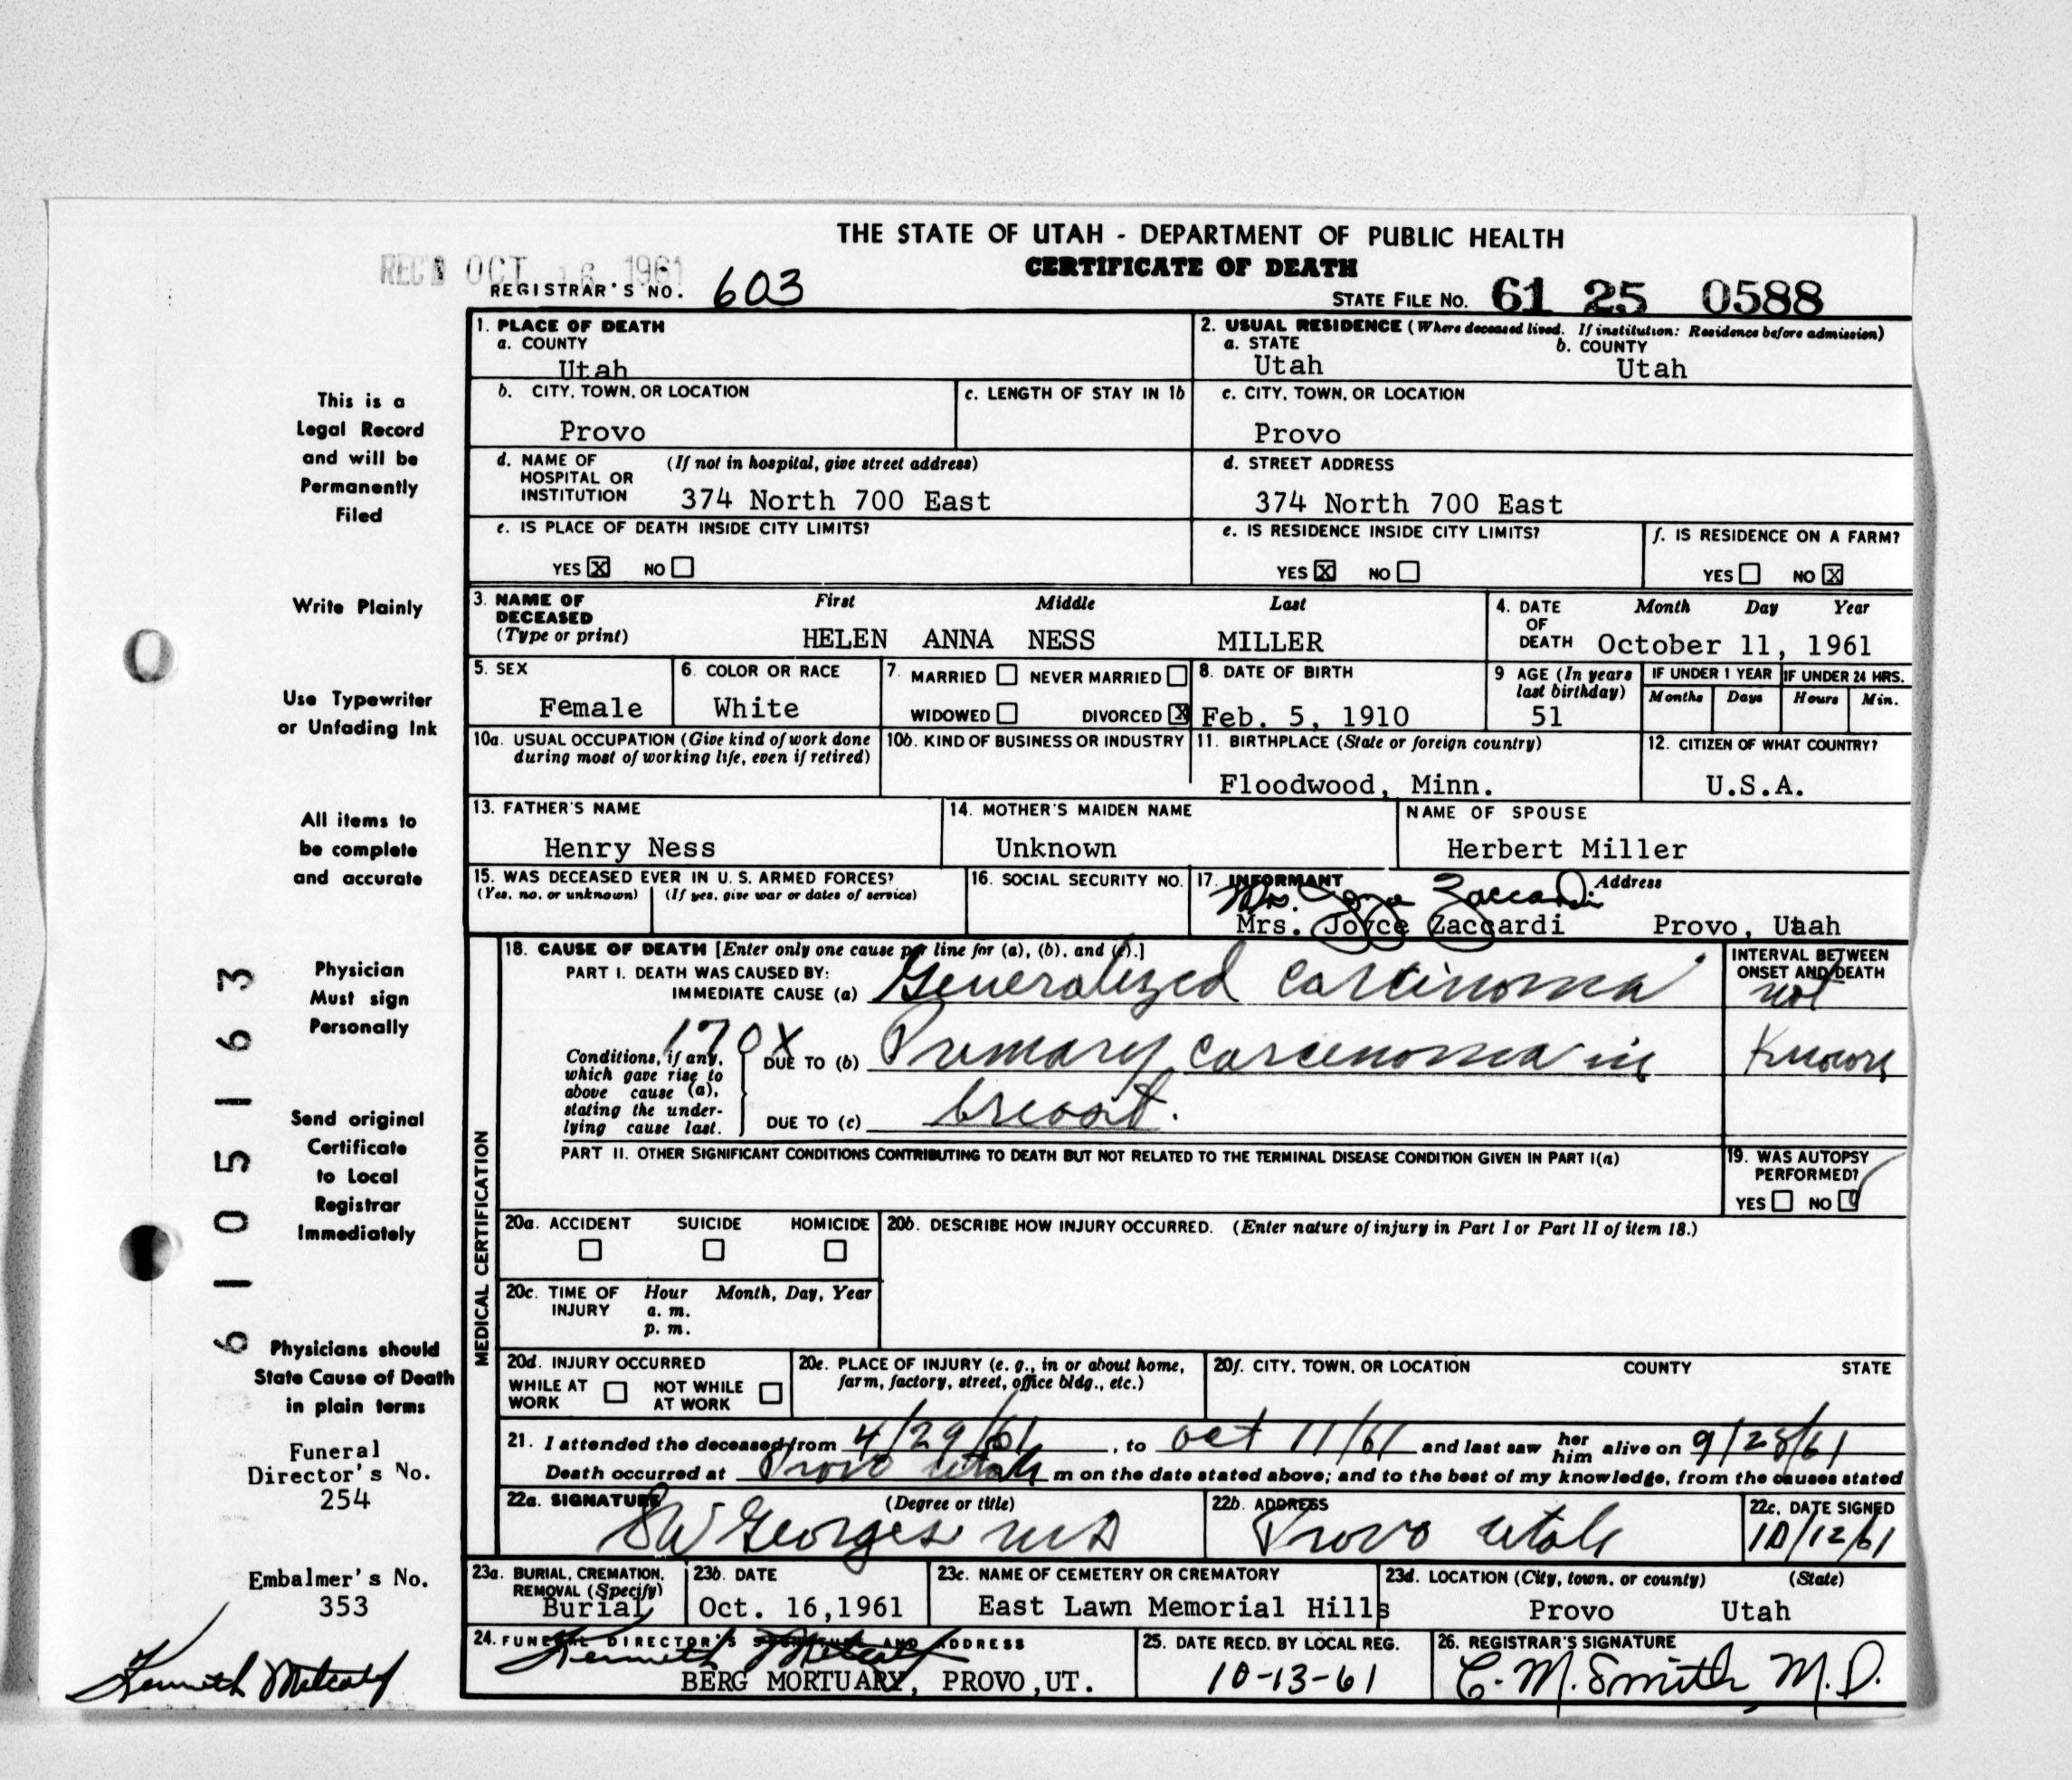 THE STATE OF UTAH - DEPARTMENT OF PUBLIC HEALTH
CERTIFICATE OF DEATH
REC'D OCT 16 1961
REGISTRAR'S NO. 603
STATE FILE NO. 61 25 0588
1. PLACE OF DEATH
a. COUNTY
Utah
2. USUAL RESIDENCE (Where deceased lived. If institution: Residence before admission)
a. STATE
Utah
b. COUNTY
Utah
b. CITY, TOWN, OR LOCATION
Provo
c. LENGTH OF STAY IN 1b
c. CITY, TOWN, OR LOCATION
Provo
d. NAME OF HOSPITAL OR INSTITUTION
(If not in hospital, give street address)
374 North 700 East
d. STREET ADDRESS
374 North 700 East
e. IS PLACE OF DEATH INSIDE CITY LIMITS?
YES X NO
e. IS RESIDENCE INSIDE CITY LIMITS?
YES X NO
f. IS RESIDENCE ON A FARM?
YES NO X
3. NAME OF DECEASED (Type or print)
First Middle Last
HELEN ANNA NESS MILLER
4. DATE OF DEATH
Month Day Year
October 11, 1961
5. SEX
Female
6. COLOR OR RACE
White
7. MARRIED NEVER MARRIED
WIDOWED DIVORCED X
8. DATE OF BIRTH
Feb. 5, 1910
9 AGE (In years last birthday)
51
IF UNDER 1 YEAR
Months Days
IF UNDER 24 HRS.
Hours Min.
10a. USUAL OCCUPATION (Give kind of work done
during most of working life, even if retired)
10b. KIND OF BUSINESS OR INDUSTRY
11. BIRTHPLACE (State or foreign country)
Floodwood, Minn.
12. CITIZEN OF WHAT COUNTRY?
U.S.A.
13. FATHER'S NAME
Henry Ness
14. MOTHER'S MAIDEN NAME
Unknown
NAME OF SPOUSE
Herbert Miller
15. WAS DECEASED EVER IN U. S. ARMED FORCES?
(Yes, no, or unknown) (If yes, give war or dates of service)
16. SOCIAL SECURITY NO.
17. INFORMANT Address
Mrs. Joyce Zaccardi
Mrs. Joyce Zaccardi Provo, Utah
MEDICAL CERTIFICATION
18. CAUSE OF DEATH [Enter only one cause per line for (a), (b), and (c).]
PART I. DEATH WAS CAUSED BY:
IMMEDIATE CAUSE (a) Generalized carcinoma
170X
Conditions, if any,
which gave rise to
above cause (a),
stating the under-
lying cause last.
DUE TO (b) Primary carcinoma in
DUE TO (c) breast.
INTERVAL BETWEEN
ONSET AND DEATH
not
Known
PART II. OTHER SIGNIFICANT CONDITIONS CONTRIBUTING TO DEATH BUT NOT RELATED TO THE TERMINAL DISEASE CONDITION GIVEN IN PART I(a)
19. WAS AUTOPSY
PERFORMED?
YES NO
20a. ACCIDENT SUICIDE HOMICIDE
20b. DESCRIBE HOW INJURY OCCURRED. (Enter nature of injury in Part I or Part II of item 18.)
20c. TIME OF INJURY
Hour Month, Day, Year
a. m.
p. m.
20d. INJURY OCCURRED
WHILE AT WORK NOT WHILE AT WORK
20e. PLACE OF INJURY (e. g., in or about home,
farm, factory, street, office bldg., etc.)
20f. CITY, TOWN, OR LOCATION COUNTY STATE
21. I attended the deceased from 4/29/61, to Oct 11/61 and last saw her him alive on 9/28/61
Death occurred at Provo Utah m on the date stated above; and to the best of my knowledge, from the causes stated
22a. SIGNATURE (Degree or title)
SW Georges MD
22b. ADDRESS
Provo Utah
22c. DATE SIGNED
10/12/61
23a. BURIAL, CREMATION,
REMOVAL (Specify)
Burial
23b. DATE
Oct. 16,1961
23c. NAME OF CEMETERY OR CREMATORY
East Lawn Memorial Hills
23d. LOCATION (City, town, or county) (State)
Provo Utah
24. FUNERAL DIRECTOR'S SIGNATURE AND ADDRESS
Kenneth Metcalf
BERG MORTUARY, PROVO ,UT.
25. DATE RECD. BY LOCAL REG.
10-13-61
26. REGISTRAR'S SIGNATURE
C. M. Smith, M.D.
This is a
Legal Record
and will be
Permanently
Filed
Write Plainly
Use Typewriter
or Unfading Ink
All items to
be complete
and accurate
Physician
Must sign
Personally
Send original
Certificate
to Local
Registrar
Immediately
Physicians should
State Cause of Death
in plain terms
Funeral
Director's No.
254
Embalmer's No.
353
Kenneth Metcalf
6105163